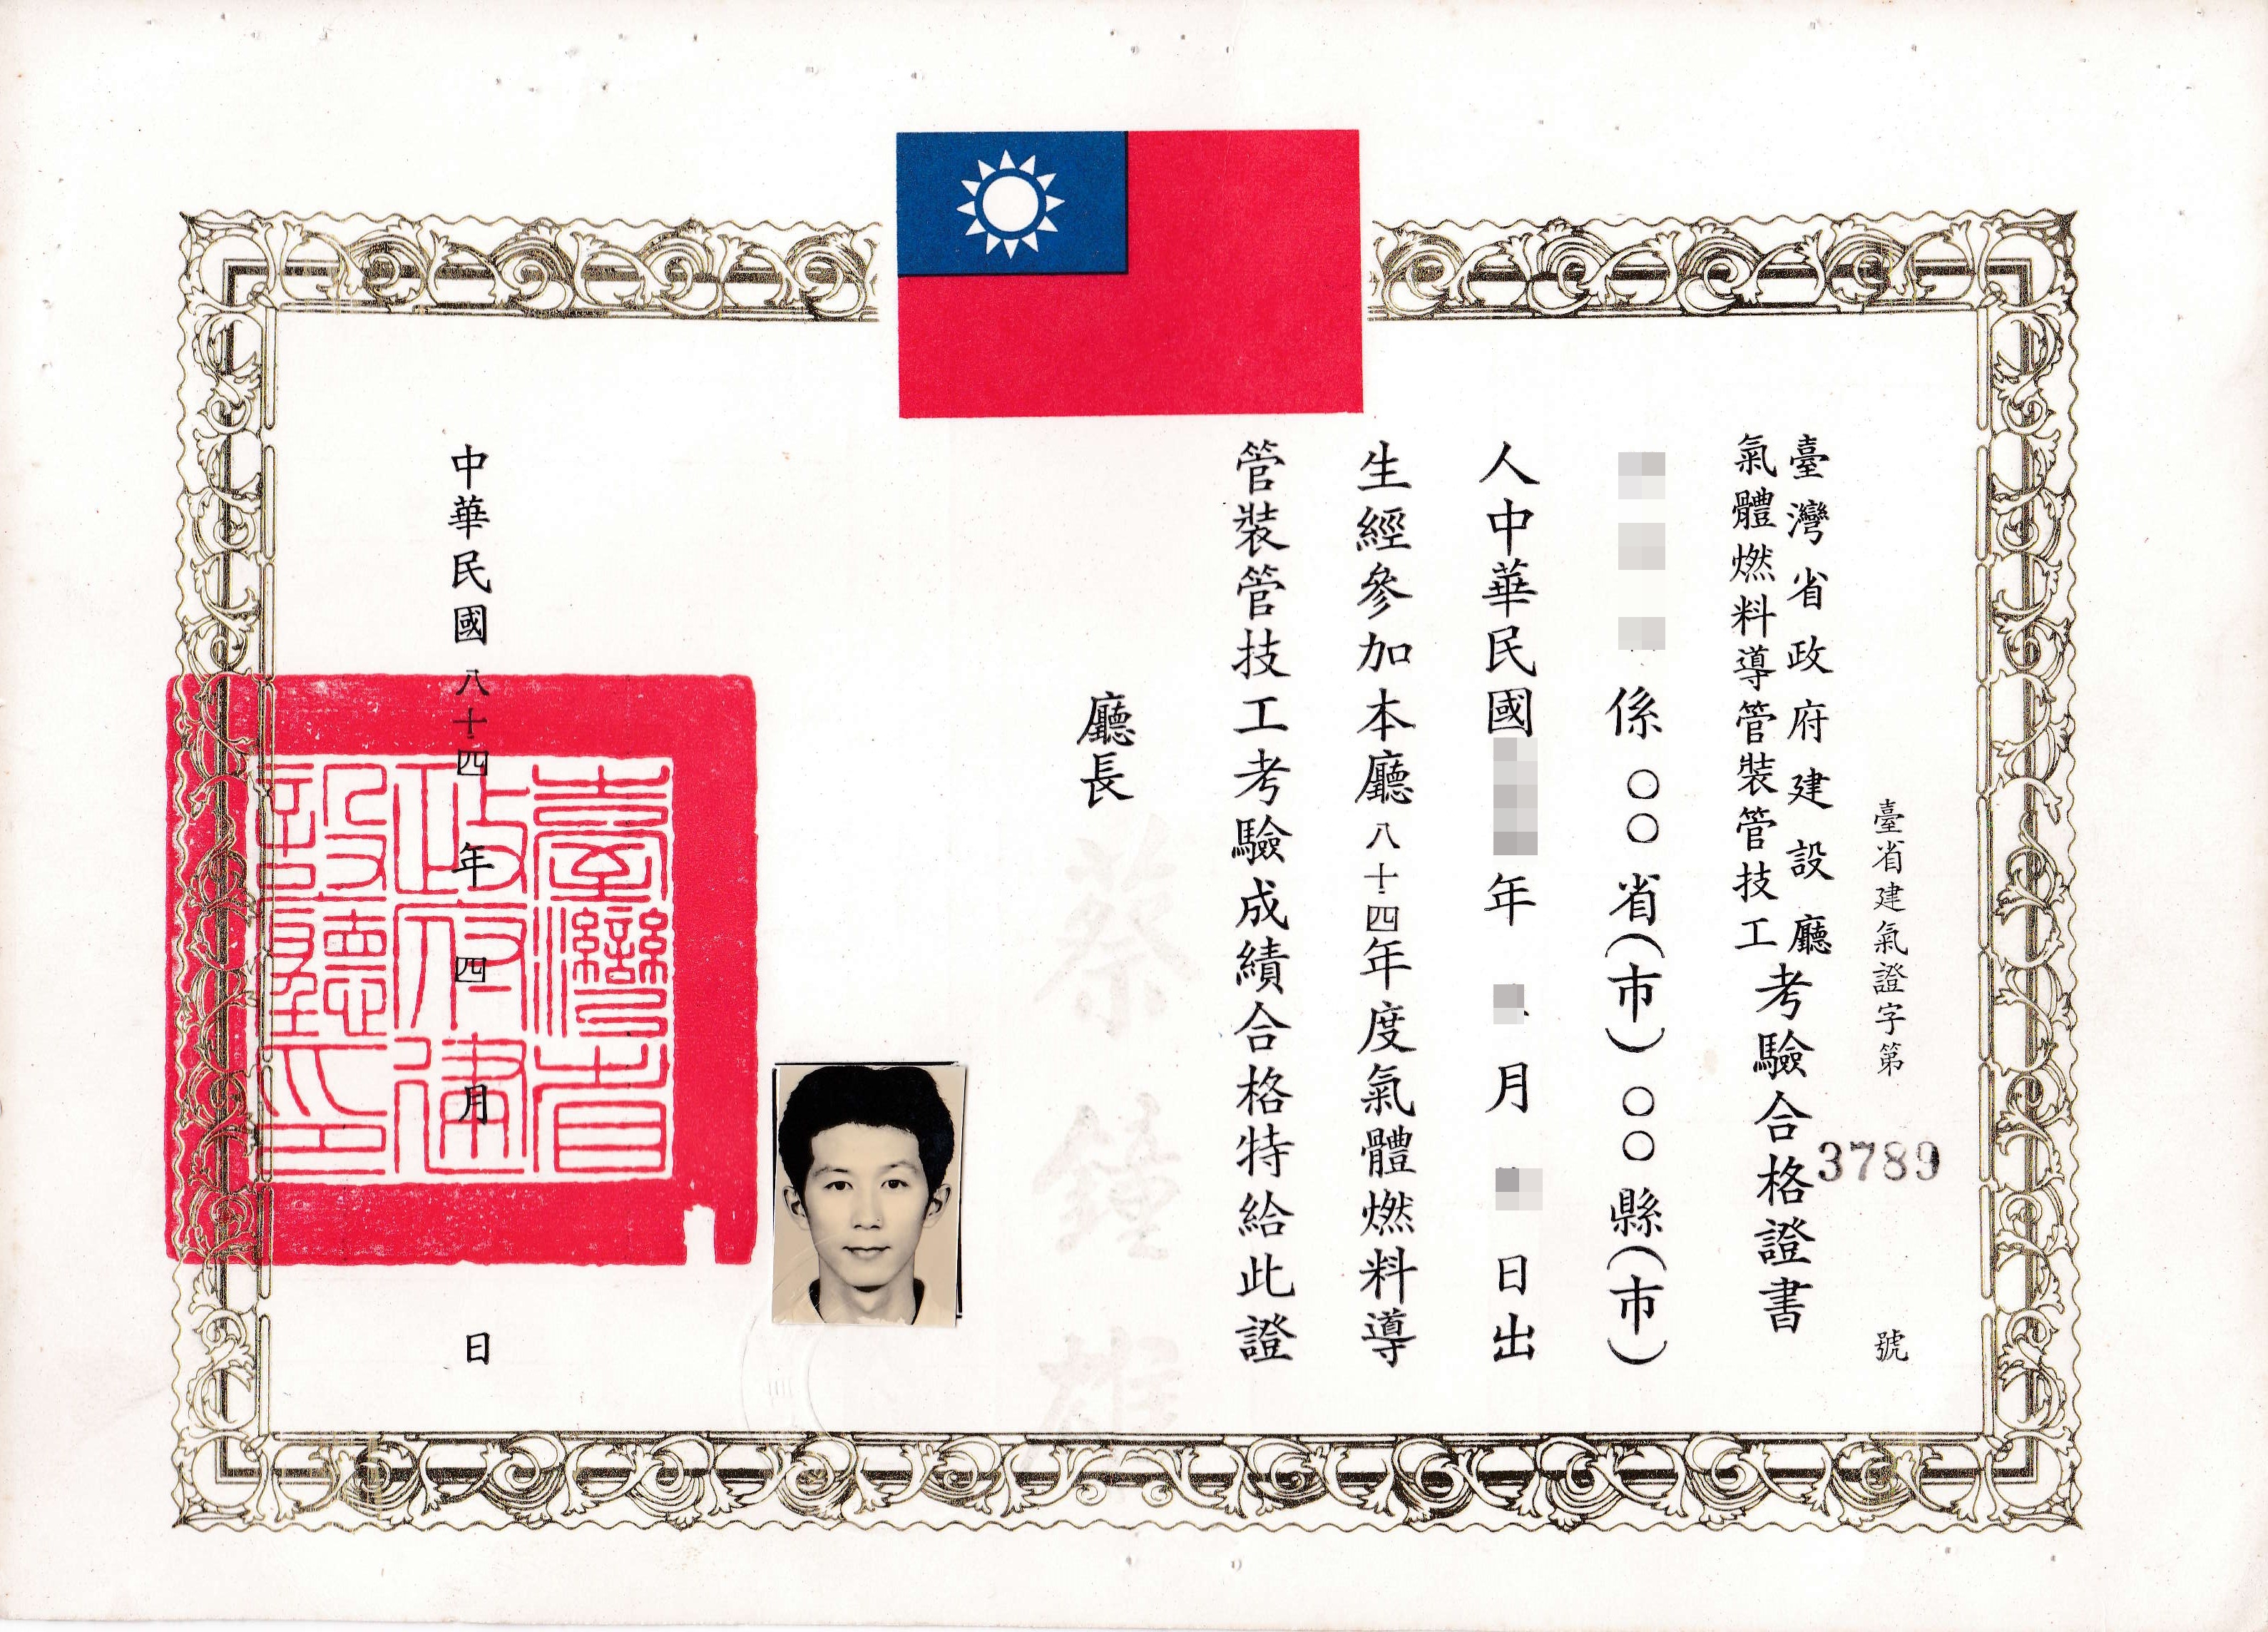 臺省建氣證字第3789號
臺灣省政府建設廳
氣體燃料導管裝管技工
考驗合格證書
係○○省(市)○○縣(市)
人中華民國年月日出
生經參加本廳八十四年度氣體燃料導
管裝管技工考驗成績合格特給此證
廳長
蔡鐘雄
中華民國八十四年四月日
臺灣省
政府建
設廳印